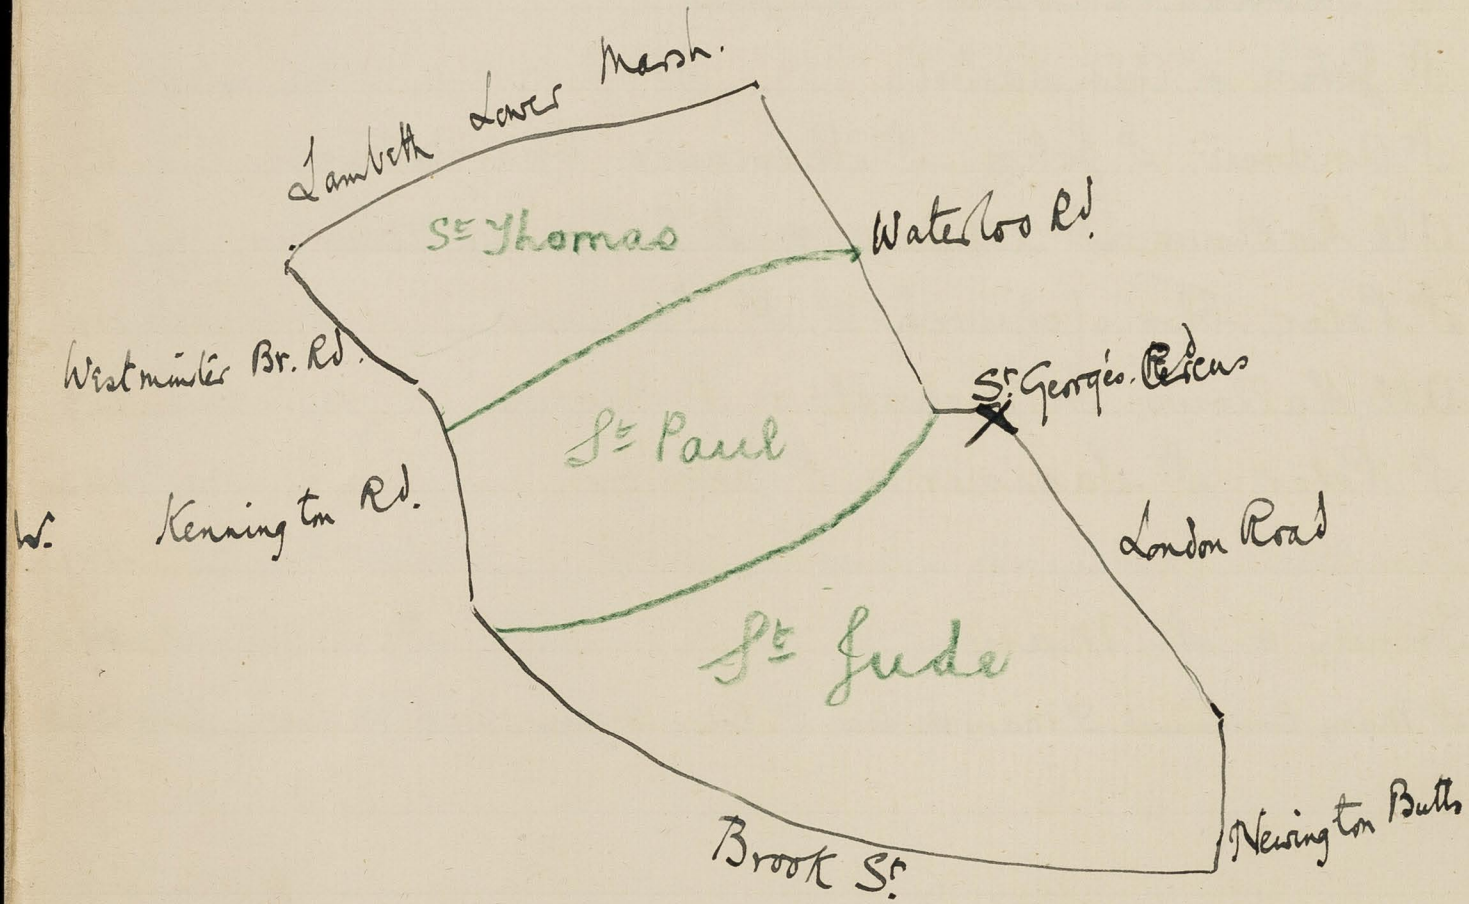 Lambeth Lower Marsh.
St Thomas
Waterloo Rd.
Westminster Br. Rd.
St George's Circus
St Paul
W. Kennington Rd.
London Road
St Jude
Newington Butts
Brook St.